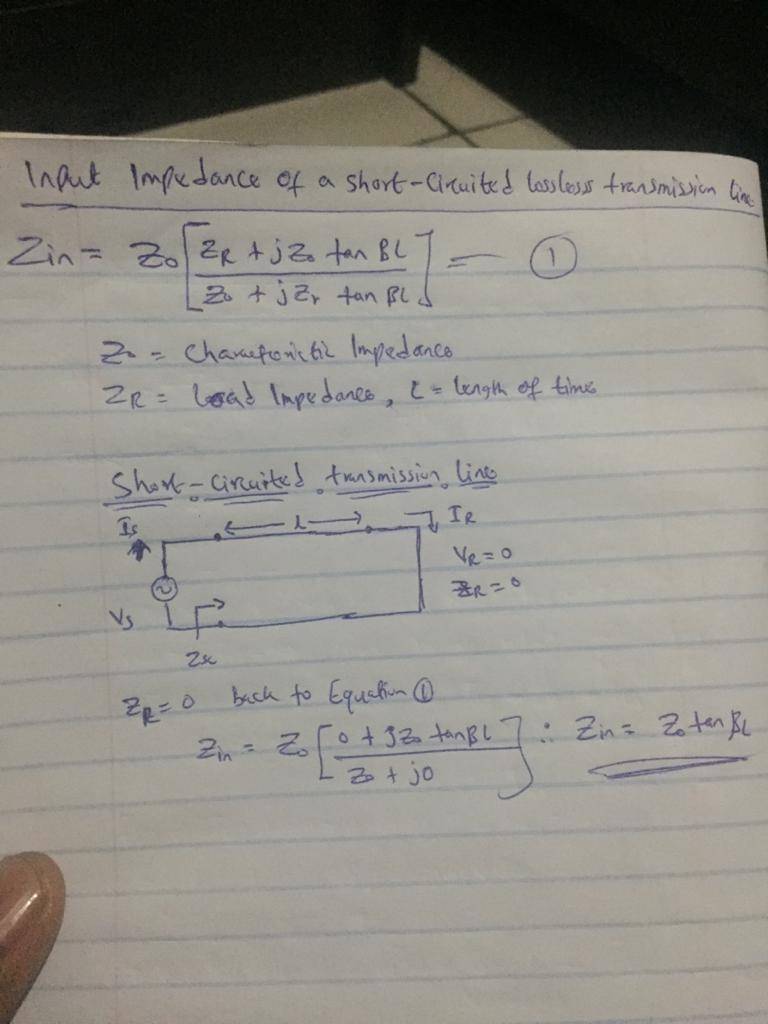 Input Impedance of a short-Circuited lossless transmission line
Zin = Zo [ ZR + jZo tan βL / Zo + jZr tan βL ] — ①
Zo = Characteristic Impedance
ZR = Load Impedance, L = length of time
Short-circuited transmission line
Is
l
IR
VR = 0
ZR = 0
Vs
ZR = 0 back to Equation ①
Zin = Zo [ 0 + jZo tanβL / Zo + j0 ] ∴ Zin = Zo tan βL